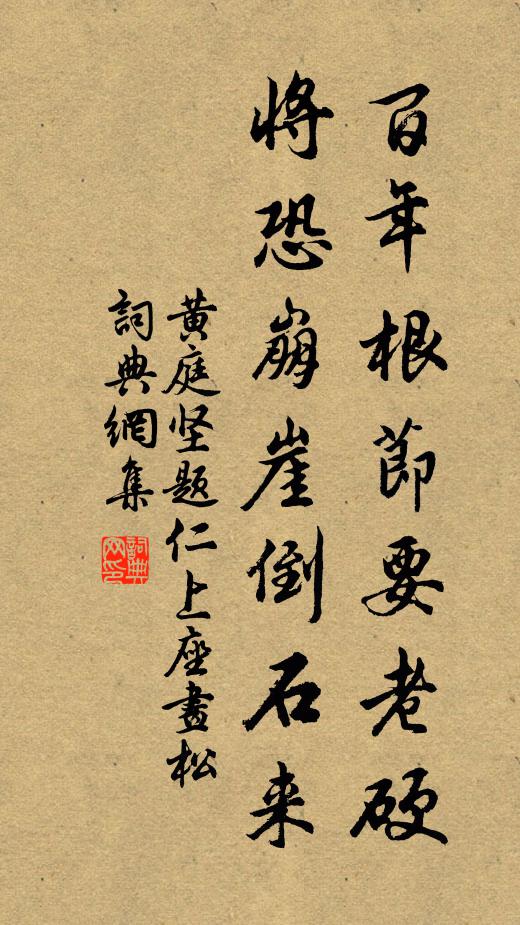 百年根節要老硬
將恐崩崖倒石来
黄庭坚题仁上座畫松
詞典網集
詞典网印